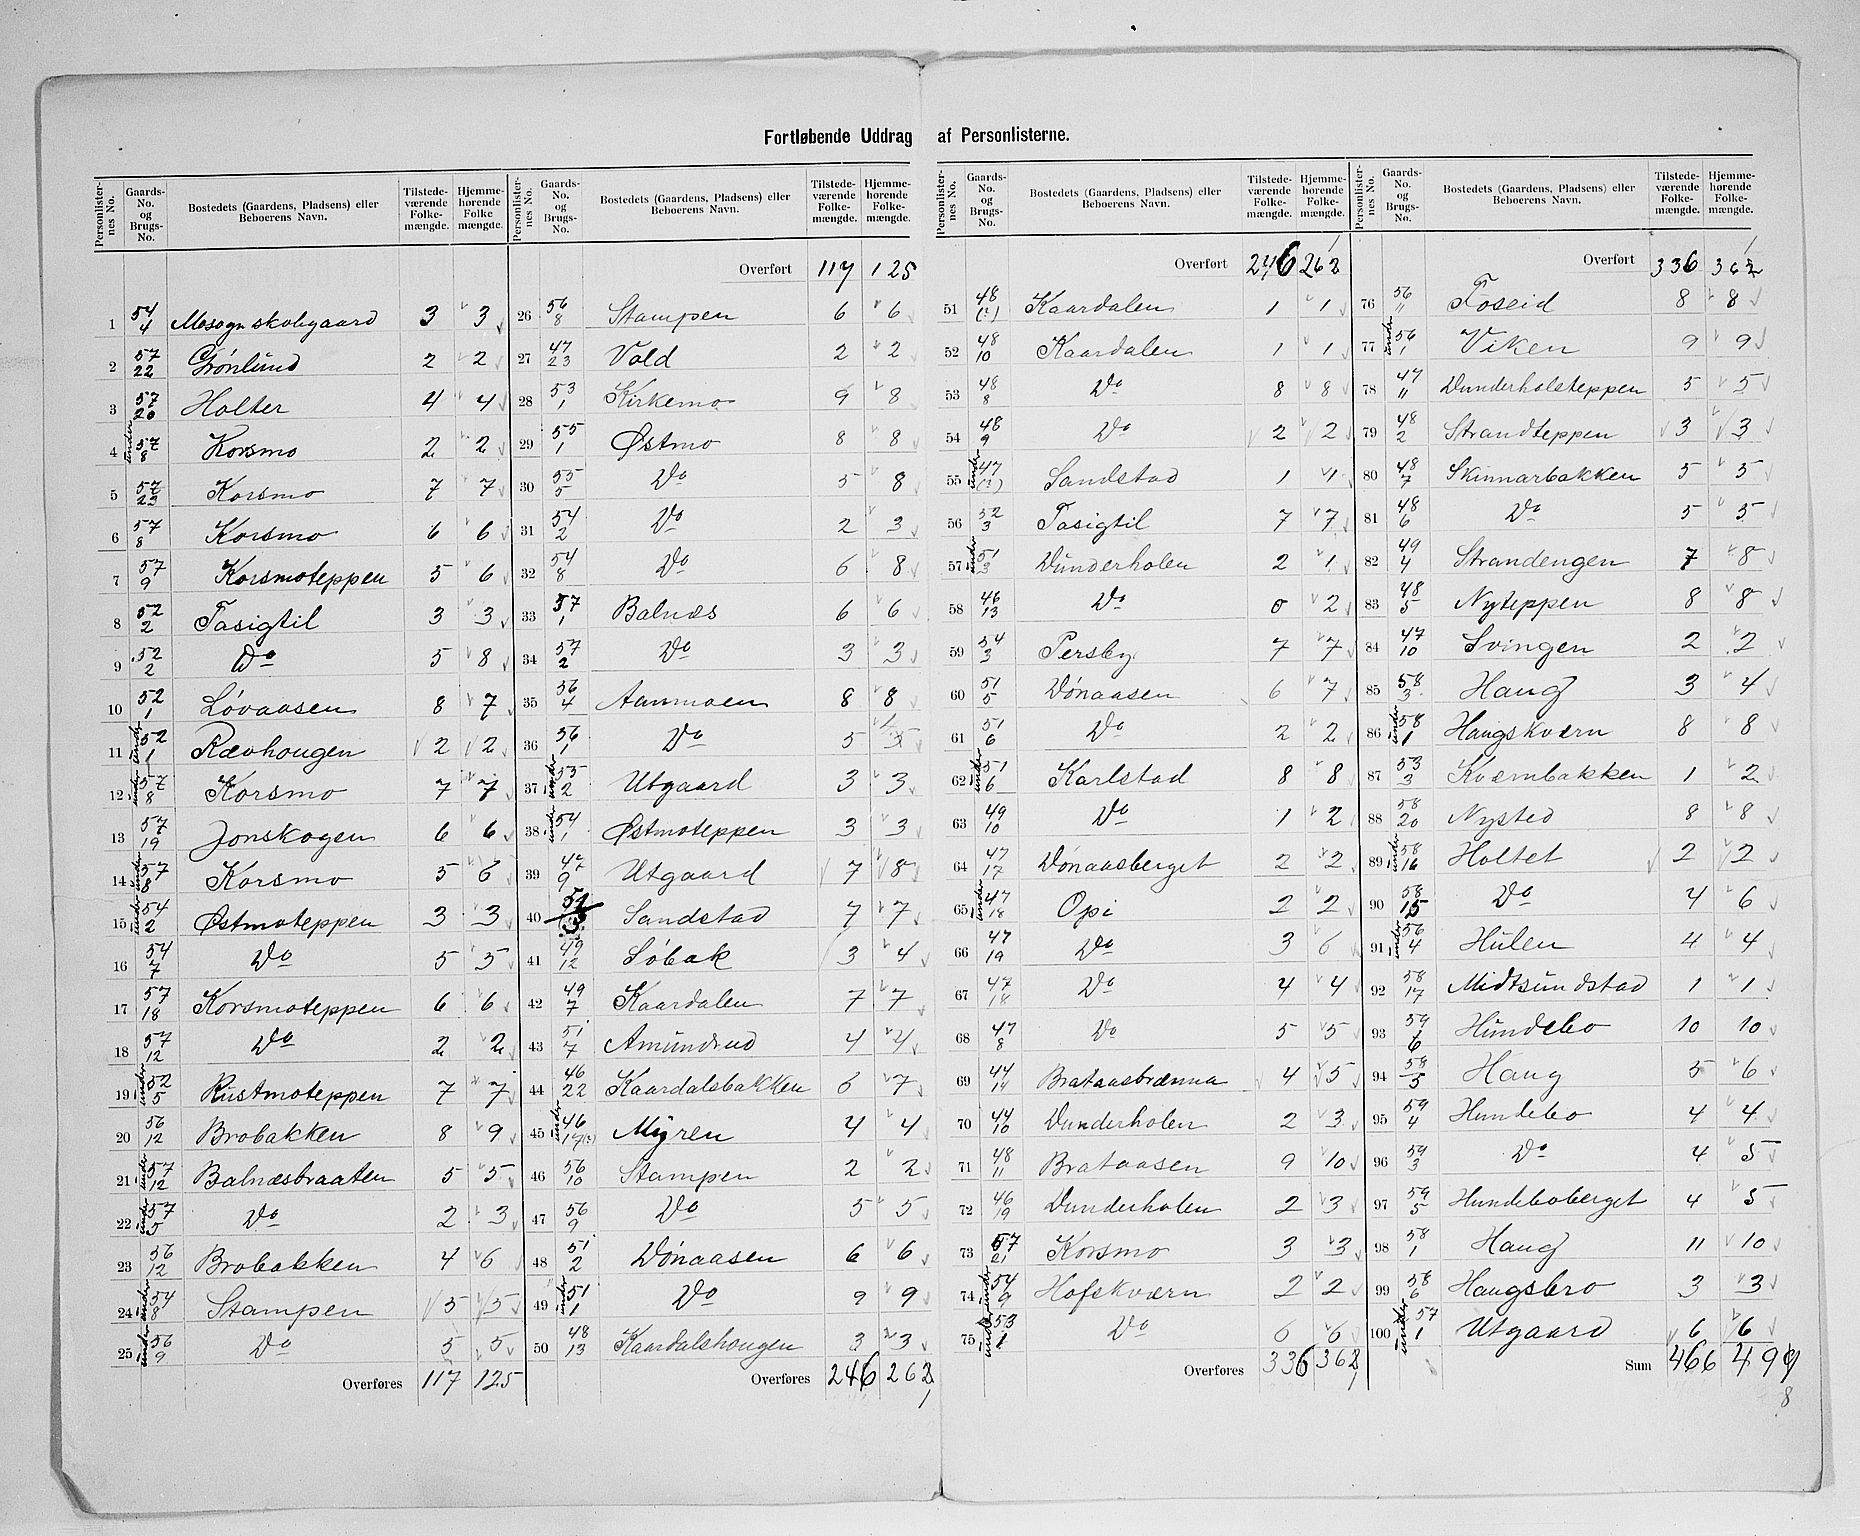 Fortløbende Uddrag af Personlisterne.
Personlister-nes No. | Gaards-No. og Brugs-No. | Bostedets (Gaardens, Pladsens) eller Beboerens Navn. | Tilstede-værende Folke-mængde. | Hjemme-hørende Folke mængde.
1 54/4 skolegaard 3 3
2 57/22 Grønlund 2 2
3 57/20 Holter 4 4
4 under 57/8 Korsmo 2 2
5 57/23 Korsmo 7 7
6 57/8 Korsmo 6 6
7 57/9 Korsmoteppen 5 6
8 52/2 Tasigtil 3 3
9 52/2 Do 5 8
10 52/1 Løvaasen 8 7
11 under 52/1 Rævhougen 2 2
12 under 57/8 Korsmo 7 7
13 57/19 Jonskogen 6 6
14 under 57/8 Korsmo 5 6
15 under 54/2 Østmoteppen 3 3
16 54/7 Do 5 5
17 57/18 Korsmoteppen 6 6
18 57/12 Do 2 2
19 under 52/5 Rustmoteppen 7 7
20 56/12 Brobakken 8 9
21 under 57/12 Balnæsbraaten 5 5
22 under 57/5 Do 2 3
23 56/12 Brobakken 4 6
24 under 54/8 Stampen 5 5
25 under 56/9 Do 5 5
Overføres 117 125
Personlister-nes No. | Gaards-No. og Brugs-No. | Bostedets (Gaardens, Pladsens) eller Beboerens Navn. | Tilstede-værende Folke-mængde. | Hjemme-hørende Folke-mængde.
Overført 117 125
26 56/8 Stampen 6 6
27 47/23 Vold 2 2
28 53/1 Kirkemo 9 8
29 55/1 Østmo 8 8
30 55/5 Do 5 8
31 54/2 Do 2 3
32 54/8 Do 6 8
33 57/1 Balnæs 6 6
34 57/2 Do 3 3
35 56/4 Aanmoen 8 8
36 56/1 Do 5
37 under 55/2 Utgaard 3 3
38 under 54/1 Østmoteppen 3 3
39 47/9 Utgaard 7 8
40 Sandstad 7 7
41 49/12 Søbak 3 4
42 49/7 Kaardalen 7 7
43 51/7 Amundrud 4 4
44 46/22 Kaardalsbakken 6 7
45 under 46/17(?) Myren 4 4
46 56/10 Stampen 2 2
47 56/9 Do 5 5
48 51/2 Dønaasen 6 6
49 under 51/1 Do 9 9
50 48/13 Kaardalshougen 3 3
Overføres 246 262
1
Personlister-nes No. | Gaards-No. og Brugs-No. | Bostedets (Gaardens, Pladsens) eller Beboerens Navn. | Tilstede-værende Folke-mængde. | Hjemme-hørende Folke-mængde.
1
Overført 246 262
51 48/(?) Kaardalen 1 1
52 48/10 Kaardalen 1 1
53 48/8 Do 8 8
54 48/9 Do 2 2
55 under 47/(?) Sandstad 1 1
56 52/3 Tasigtil 7 7
57 under 51/3 Dunderholen 2 1
58 46/13 Do 0 2
59 54/3 Persby 7 7
60 51/5 Dønaasen 6 7
61 51/6 Do 2 2
62 under 51/6 Karlstad 8 8
63 49/10 Do 1 2
64 47/17 Dønaasberget 2 2
65 under 47/18 Opi 2 2
66 47/19 Do 3 6
67 47/18 Do 4 4
68 47/8 Do 5 5
69 44/14 Brataasbrænna 4 5
70 44/10 Dunderholen 2 3
71 48/11 Brataasen 9 10
72 46/19 Dunderholen 2 3
73 57/21 Korsmo 3 3
74 under 54/9 Hofskværn 2 2
75 under 53/1 Do 6 6
Overføres 336 362
1
Personlister-nes No. | Gaards-No. og Brugs-No. | Bostedets (Gaardens, Pladsens) eller Beboerens Navn. | Tilstede-værende Folke-mængde. | Hjemme-hørende Folke-mængde.
1
Overført 336 362
76 56/11 Foseid 8 8
77 under 56/1 Viken 9 9
78 47/11 Dunderholsteppen 5 5
79 48/2 Strandteppen 3 3
80 48/7 Skinnarbakken 5 5
81 48/6 Do 5 5
82 49/4 Strandengen 7 8
83 48/5 Nyteppen 8 8
84 47/10 Svingen 2 2
85 58/3 Haug 3 4
86 under 58/1 Haugskværn 8 8
87 53/3 Kværnbakken 1 2
88 58/20 Nysted 8 8
89 under 58/16 Holtet 2 2
90 58/15 Do 4 6
91 under 56/4 Hulen 4 4
92 58/17 Midtsundstad 1 1
93 59/6 Hundebo 10 10
94 58/5 Haug 5 6
95 59/4 Hundebo 4 4
96 59/3 Do 4 5
97 59/5 Hundeboberget 4 5
98 58/1 Haug 11 10
99 58/6 Haugsbro 3 3
100 under 57/1 Utgaard 6 6
Sum 466 499
8